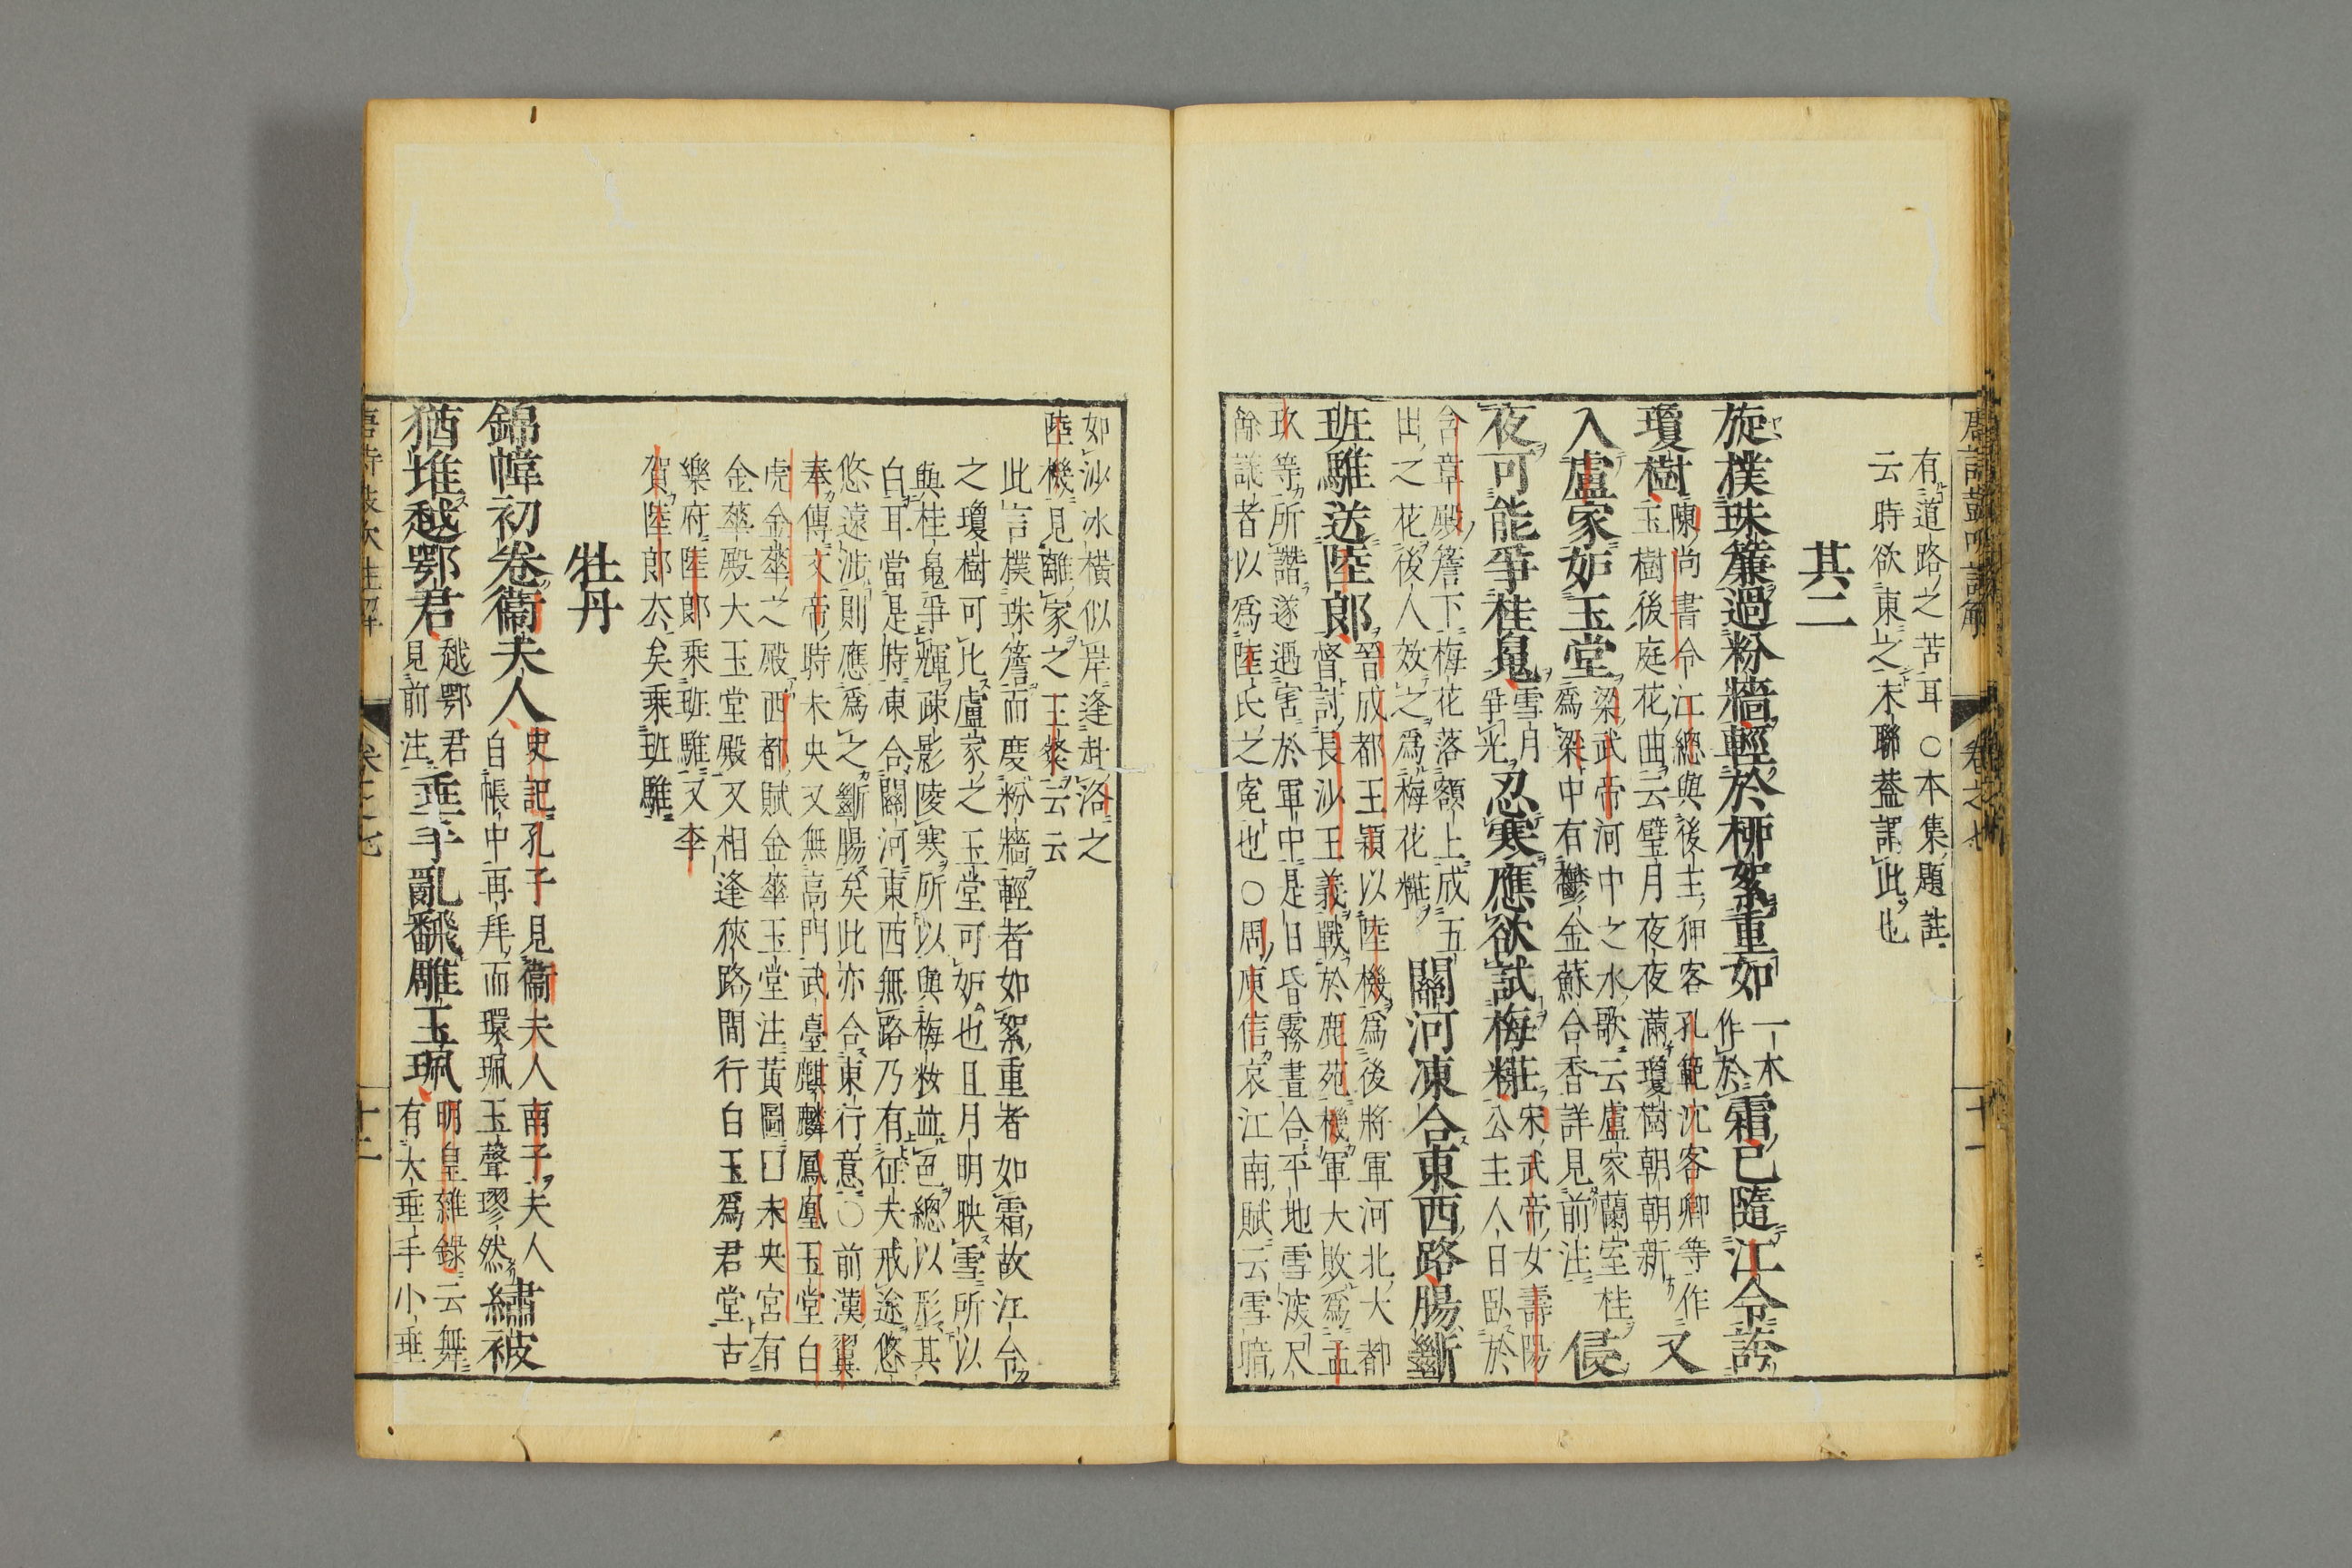 有道路之苦耳○本集題註
云時欲東之末聯蓋謂此也
其二
旋撲珠簾過粉牆輕於柳絮重如一本作於霜已隨江令誇
瓊樹陳尚書令江總與後主狎客孔範沈客卿等作玉樹後庭花曲云璧月夜夜滿瓊樹朝朝新又
入盧家妒玉堂梁武帝河中之水歌云盧家蘭室桂爲梁中有鬱金蘇合香詳見前注侵
夜可能爭桂魄雪月爭光忍寒應欲試梅粧宋武帝女壽陽公主人日臥於
含章殿簷下梅花落額上成五出之花後人效之爲梅花粧關河凍合東西路腸斷
班騅送陸郎晉成都王穎以陸機爲後將軍河北大都督討長沙王義戰於鹿苑機軍大敗爲孟
玖等所譖遂遇害於軍中是日昏霧晝合平地雪深尺
餘議者以爲陸氏之寃也○周庾信哀江南賦云雪暗
如沙冰橫似岸逢赴洛之
陸機見離家之王粲云云
此言撲珠簷而度粉牆輕者如絮重者如霜故江令
之瓊樹可比盧家之玉堂可妒也且月明映雪所以
與桂魄爭輝疎影陵寒所以與梅妝並色總以形其
白耳當是時凍合關河東西無路乃有征夫戒途悠
悠遠涉則應爲之斷腸矣此亦合東行意○前漢翼
奉傳文帝時未央又無高門武臺麒麟鳳凰玉堂白
虎金華之殿西都賦金華玉堂注黃圖曰未央宮有
金華殿大玉堂殿又相逢狹路間行白玉爲君堂古
樂府陸郎乘班騅又李
賀陸郎去矣乘班騅
牡丹
錦幃初卷衞夫人史記孔子見衞夫人南子夫人自帳中再拜而環珮玉聲璆然繡被
猶堆越鄂君越鄂君見前注垂手亂飜雕玉珮明皇雜錄云舞有大垂手小垂